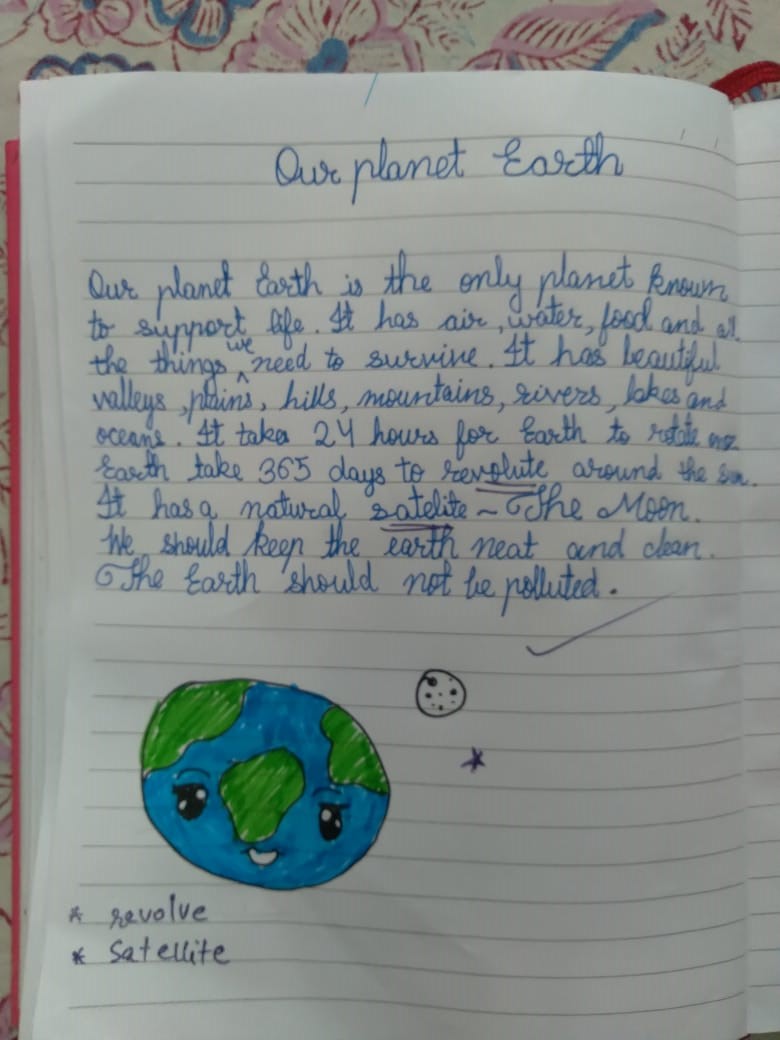 Our planet Earth
Our planet Earth is the only planet known
to support life. It has air, water, food and all
the things we need to survive. It has beautiful
valleys, plains, hills, mountains, rivers, lakes and
oceans. It takes 24 hours for Earth to rotate
Earth take 365 days to revolute around the sun.
It has a natural satelite ~ The Moon.
We should keep the earth neat and clean.
The Earth should not be polluted.
* revolve
* Satellite